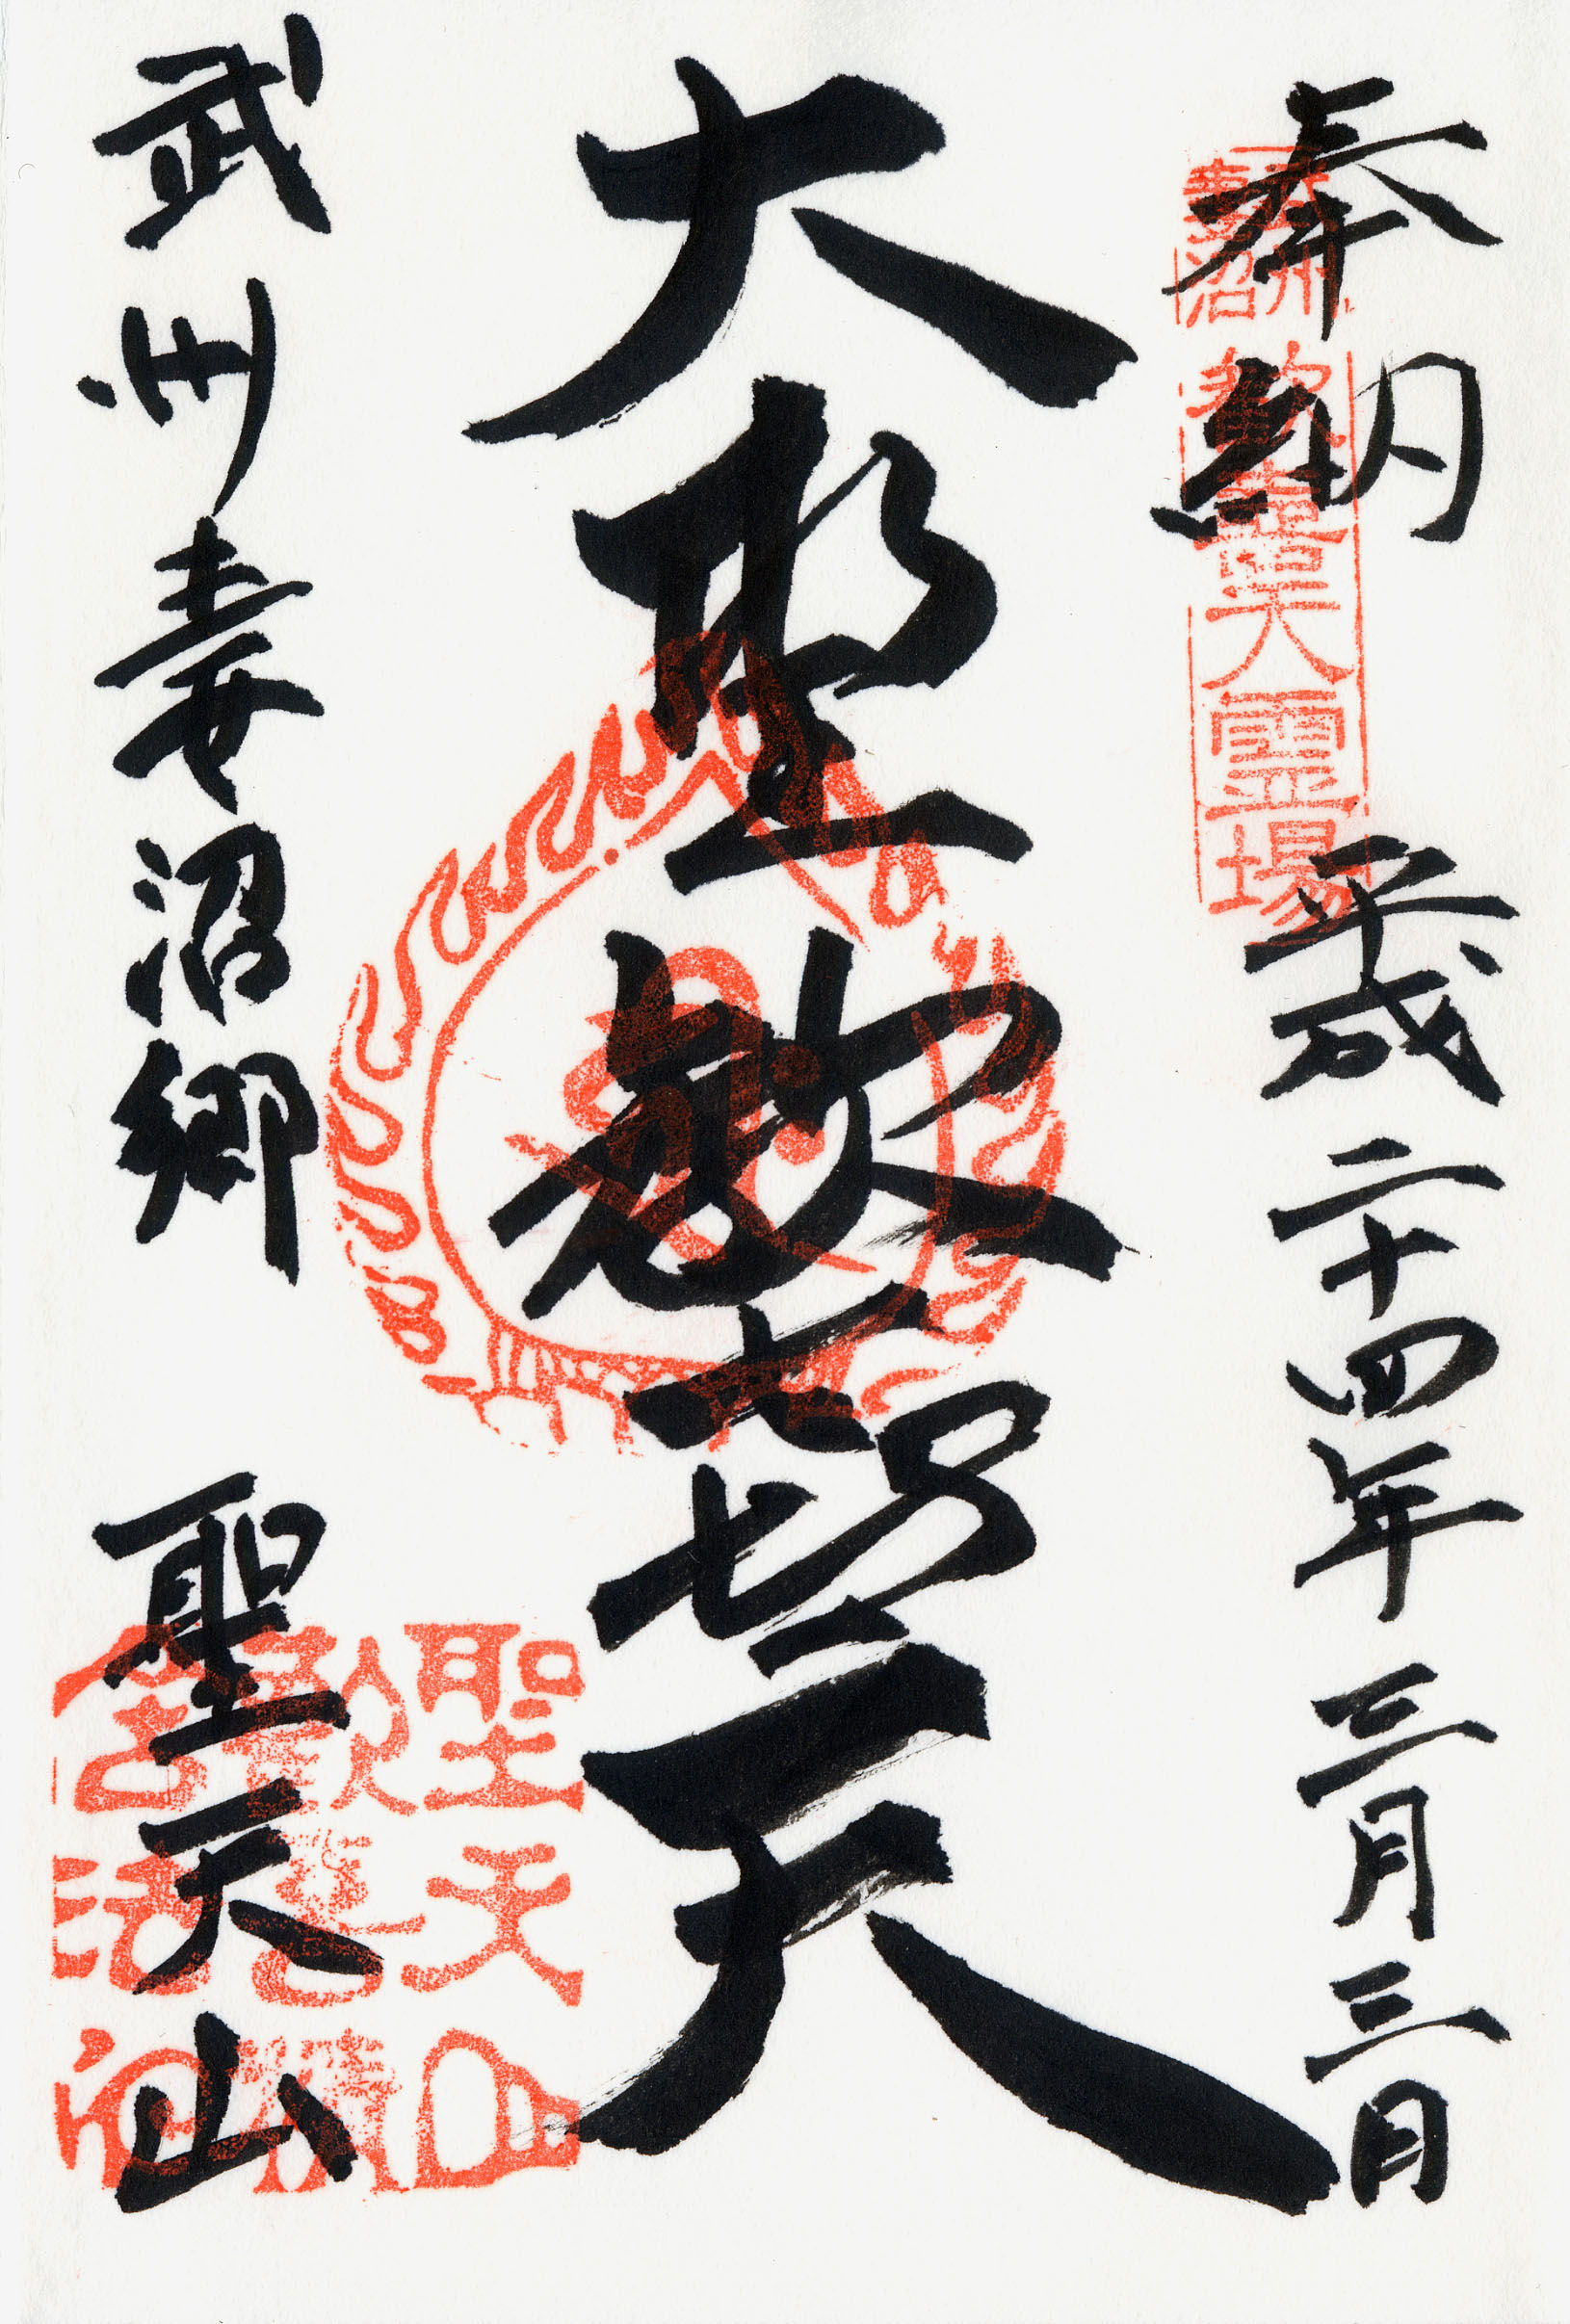 奉納 平成二十四年三月三日
武州
妻沼
歓喜天霊場
大聖歓喜天
武州妻沼郷 聖天山
聖天山